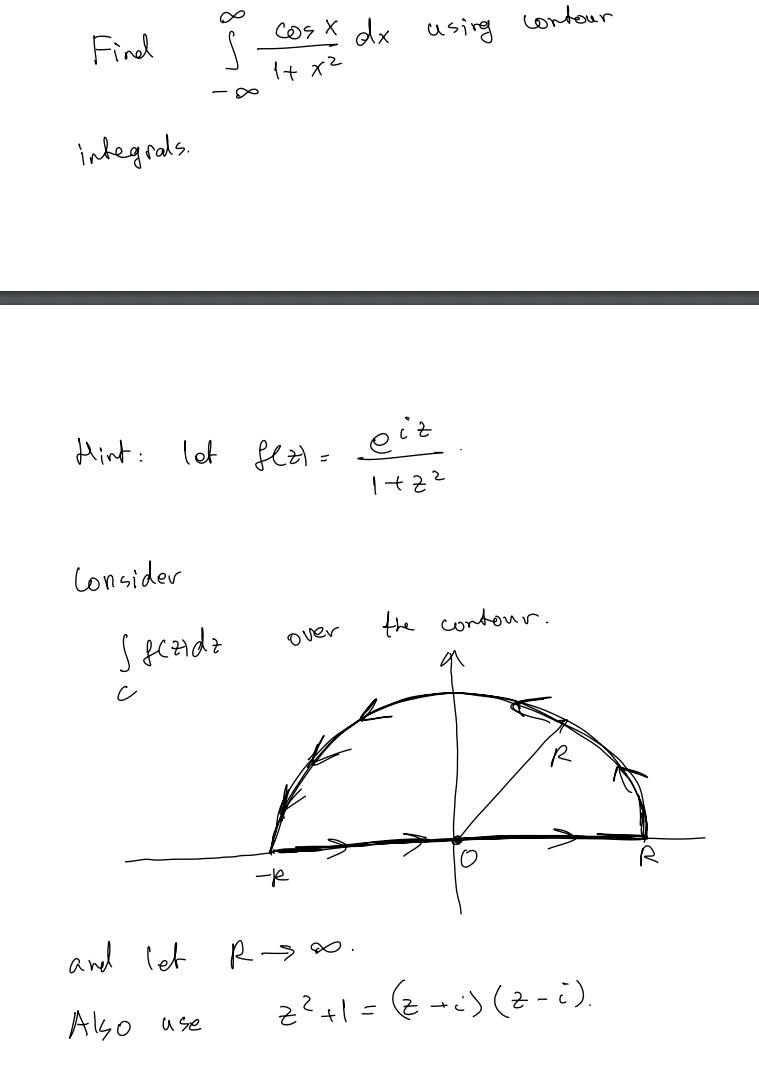 Find ∫_{-∞}^{∞} cos x / (1 + x²) dx using contour
integrals.
Hint: let f(z) = e^{iz} / (1 + z²).
Consider
∫_C f(z)dz over the contour.
R
-R O R
and let R → ∞.
Also use z² + 1 = (z + i)(z - i).